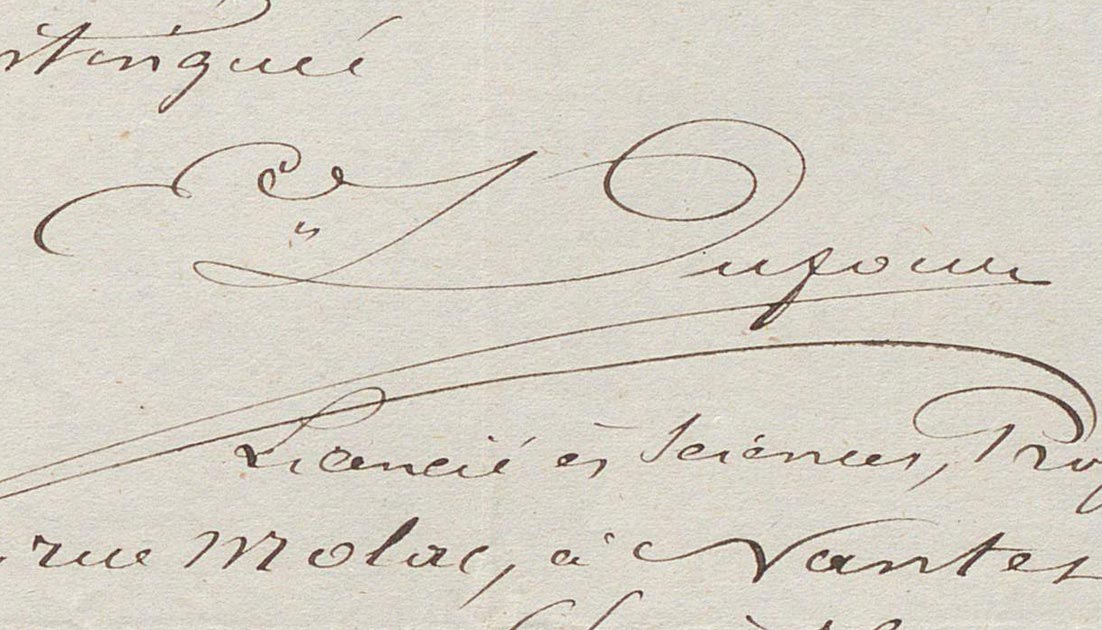 distinguée
Ed. Dufour
Licencié ès Sciences, Prof
rue Molac, à Nantes